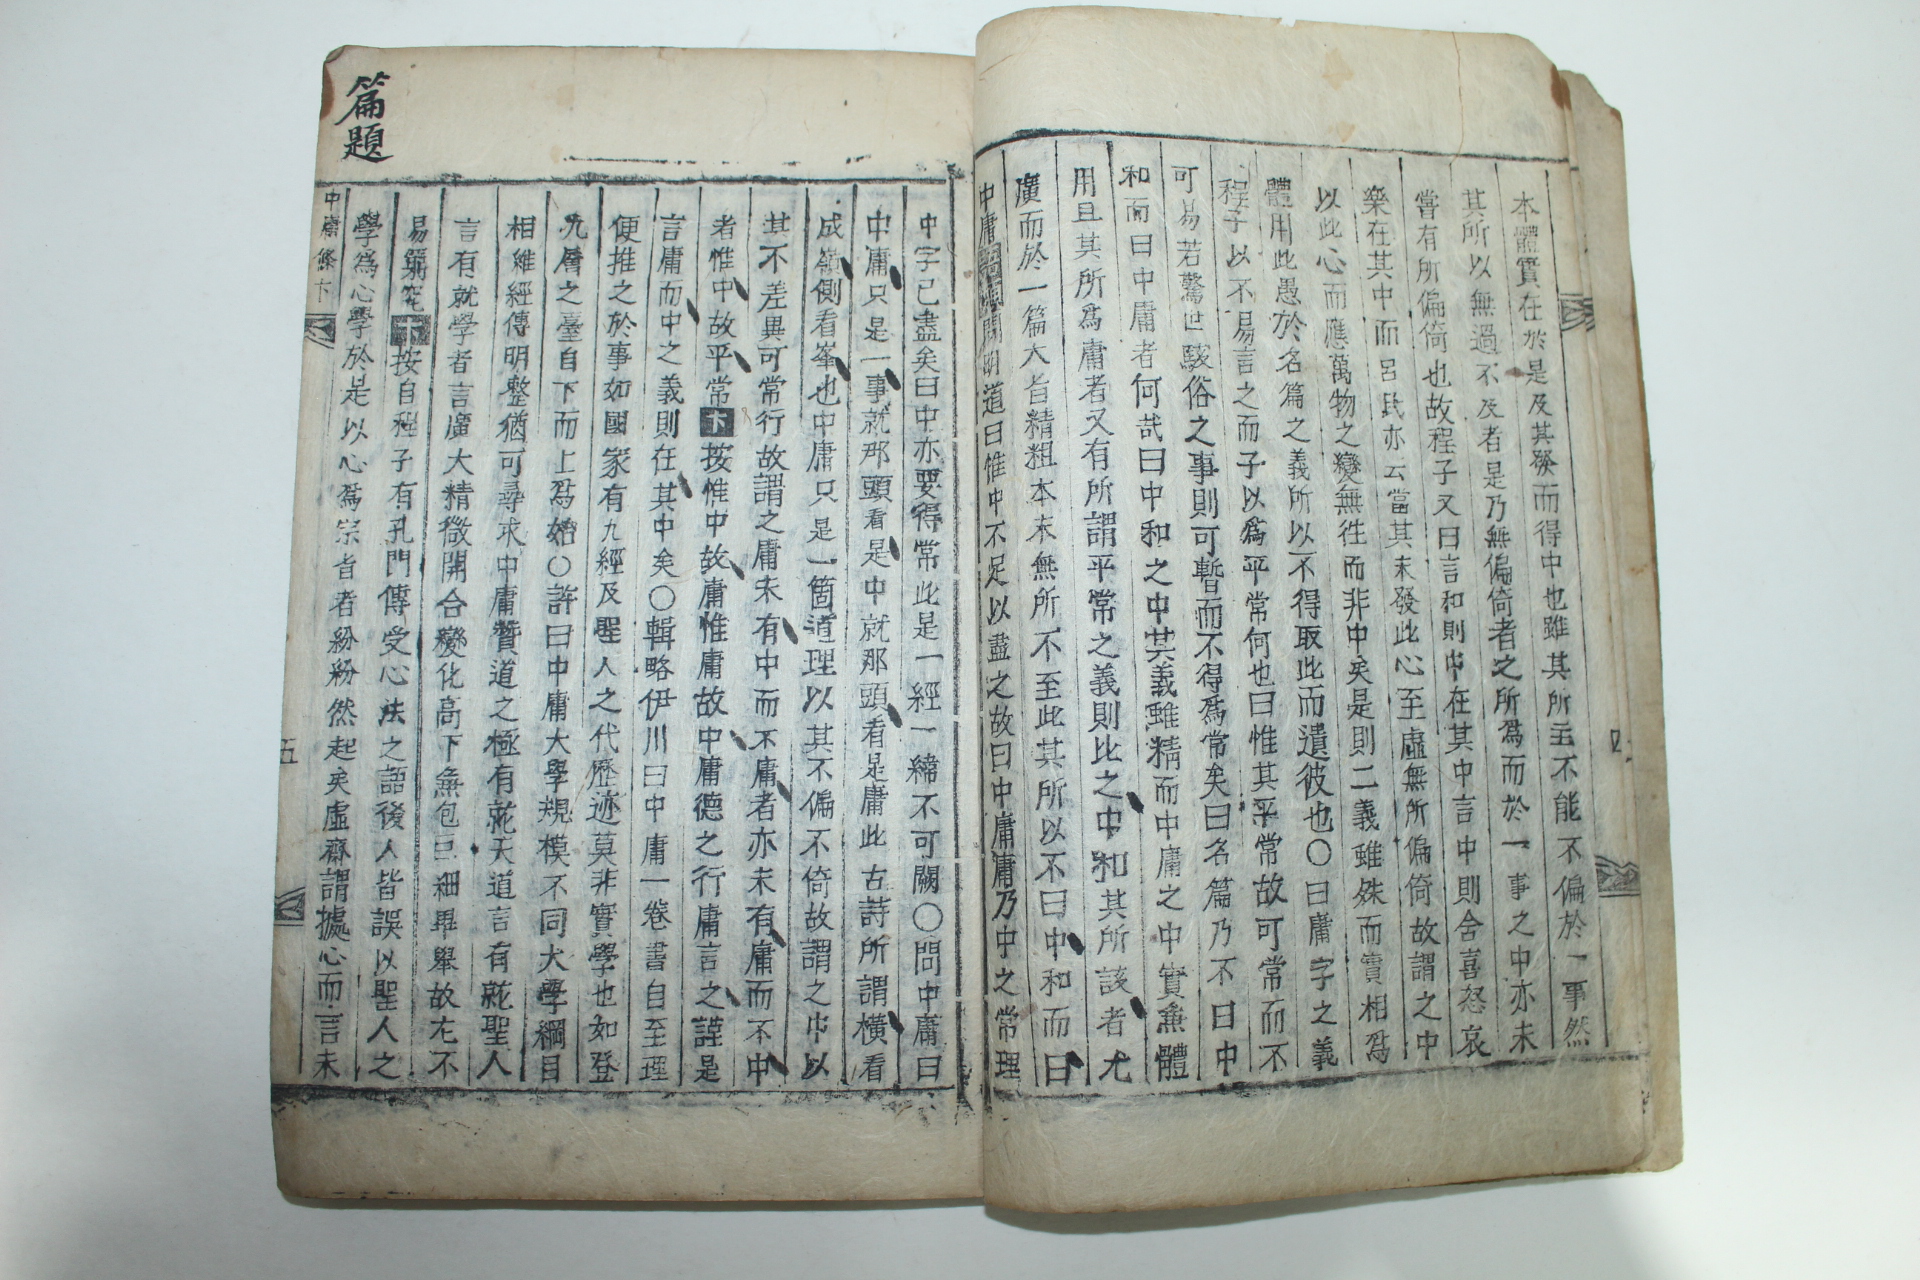 本體實在於是及其發而得中也雖其所主不能不偏於一事然
其所以無過不及者是乃無偏倚者之所爲而於一事之中亦未
嘗有所偏倚也故程子又曰言和則中在其中言中則含喜怒哀
樂在其中而呂氏亦云當其未發此心至虛無所偏倚故謂之中
以此心而應萬物之變無徃而非中矣是則二義雖殊而實相爲
體用此愚於名篇之義所以不得取此而遺彼也○曰庸字之義
程子以不易言之而子以爲平常何也曰惟其平常故可常而不
可易若驚世駭俗之事則可暫而不得爲常矣曰名篇乃不曰中
和而曰中庸者何哉曰中和之中其義雖精而中庸之中實兼體
用且其所爲庸者又有所謂平常之義則比之中和其所該者尤
廣而於一篇大旨精粗本末無所不至此其所以不曰中和而曰
中庸 明道曰惟中不足以盡之故曰中庸庸乃中之常理
中字已盡矣曰中亦要得常此是一經一緯不可闕○問中庸曰
中庸只是一事就那頭看是中就那頭看是庸此古詩所謂橫看
成嶺側看峯也中庸只是一箇道理以其不偏不倚故謂之中以
其不差異可常行故謂之庸未有中而不庸者亦未有庸而不中
者惟中故平常 卞 按惟中故庸惟庸故中庸德之行庸言之謹是
言庸而中之義則在其中矣○輯略伊川曰中庸一卷書自至理
便推之於事如國家有九經及聖人之代歷迹莫非實學也如登
九層之臺自下而上爲始○許曰中庸大學規模不同大學綱目
相維經傳明整猶可尋求中庸贊道之極有就天道言有就聖人
言有就學者言廣大精微開合變化高下兼包巨細畢擧故尤不
易窮究 卞 按自程子有孔門傳受心法之語後人皆誤以聖人之
學爲心學於是以心爲宗旨者紛紛然起矣虛齋謂據心而言未
中庸條卞
五
篇題
四